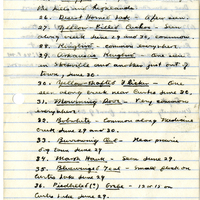 the hills and highlands
26. Desert Horned Lark - Often seen.
27. Yellow-Billed Cuckoo - Seen
along creek June 29 and 30, common
28. Kingbird - common everywhere.
29. Arkansas Kingbird - One seen
in Meadville and another just out of
town, June 30.
30. Yellow-shafted Flicker - One
seen along creek near Curtis June 30.
31. Mourning Dove - Very common
everywhere.
32. Bobwhite - Common along Medicine
creek June 29 and 30.
33. Burrowing Owl - Near prairie
dog town June 29.
34. Marsh Hawk - Seen June 29.
35. Bluewinged Teal - Small flock on
Curtis Lake June 29.
36. Piedbilled(?) Grebe - 12 or 15 on
Curtis Lake June 29.